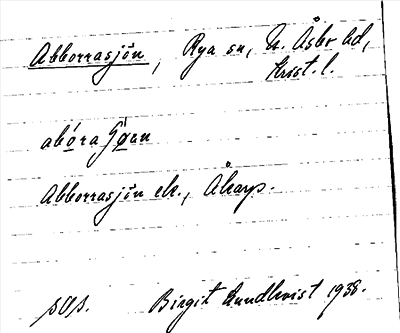 Abborrasjön, Rya sn, N. Åsbo hd,
Krist. l.
abóra
Abborrasjön ek., Åkarp.
Birgit Lundkvist 1938.